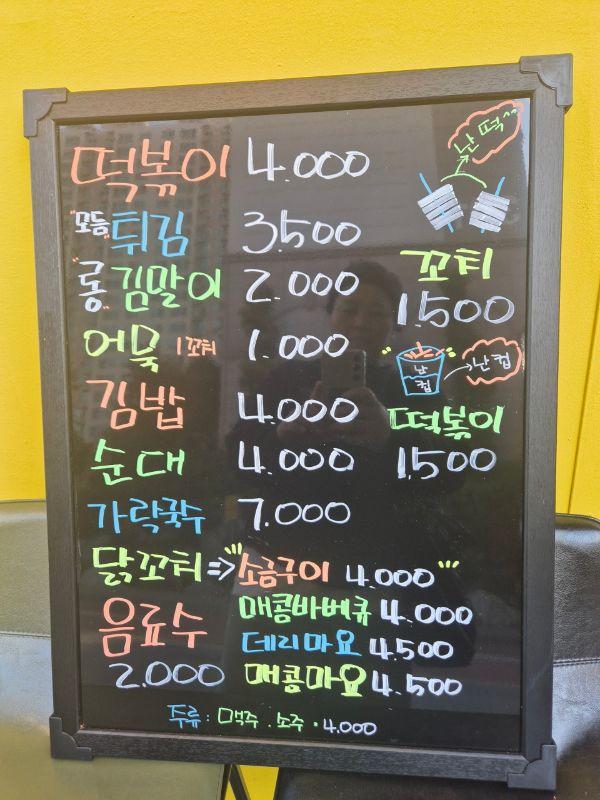 떡볶이 4.000
"모듬" 튀김 3.500
"롱" 김말이 2.000
어묵 1꼬치 1.000
김밥 4.000
순대 4.000
가락국수 7.000
닭꼬치 => 소금구이 4.000
매콤바베큐 4.000
데리마요 4.500
매콤마요 4.500
음료수
2.000
주류 : 맥주 . 소주 . 4.000
난떡^^
꼬치
1.500
난컵
난컵
떡볶이
1.500